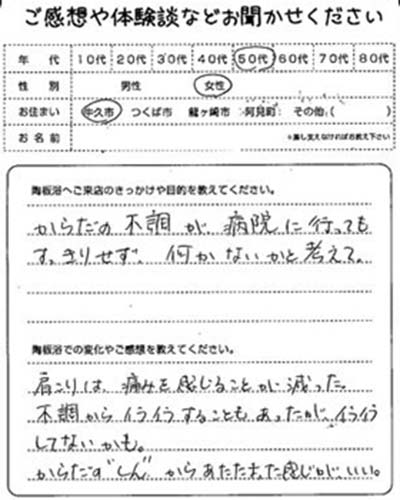 ご感想や体験談などお聞かせください
年代 10代 20代 30代 40代 50代 60代 70代 80代
性別 男性 女性
お住まい 牛久市 つくば市 龍ヶ崎市 阿見町 その他( )
お名前 ※差し支えなければお教え下さい
陶板浴へご来店のきっかけや目的を教えてください。
からだの不調が病院に行っても
すっきりせず、何かないかと考えて。
陶板浴での変化やご感想を教えてください。
肩こりは、痛みを感じることが減った。
不調からイライラすることもあったが、イライラ
してないかも。
からだが"しん"からあたたまった感じが、いい。